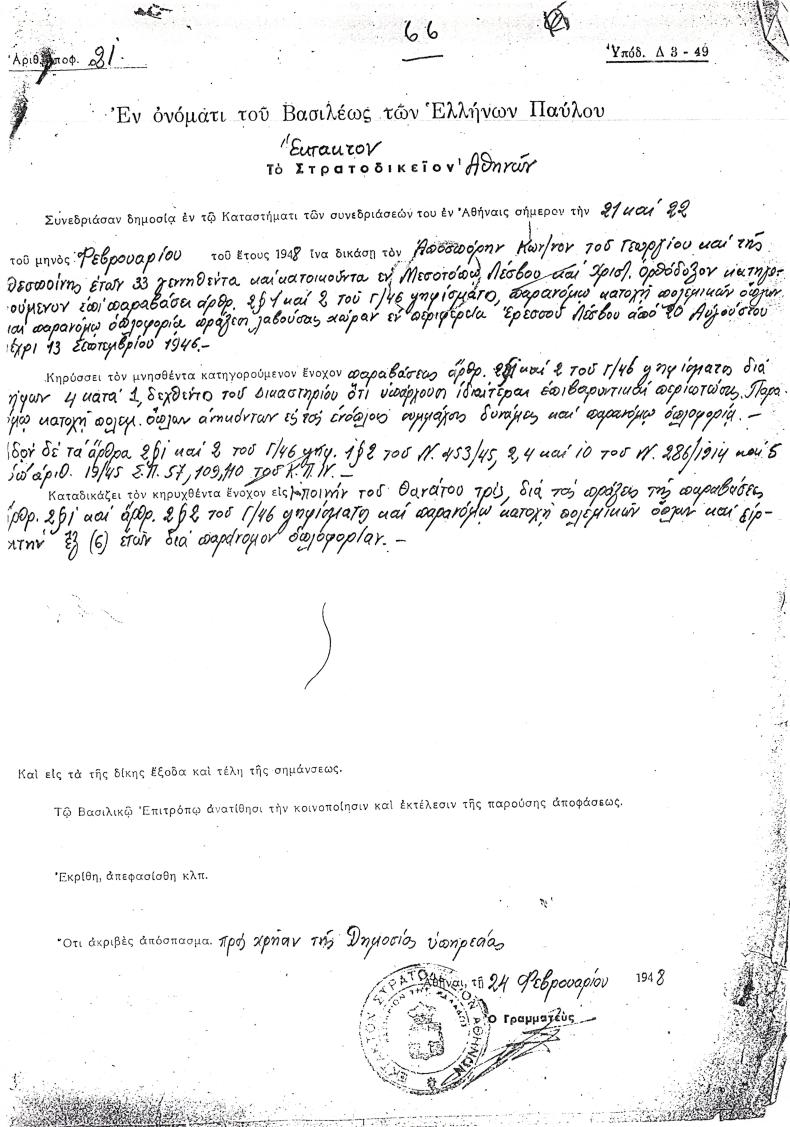 66
Ἀριθ. ἀποφ. 21. Ὑπόδ. Δ 3 - 49
Ἐν ὀνόματι τοῦ Βασιλέως τῶν Ἑλλήνων Παύλου
Ἔκτακτον
Τὸ Στρατοδικεῖον Ἀθηνῶν
Συνεδριάσαν δημοσίᾳ ἐν τῷ Καταστήματι τῶν συνεδριάσεών του ἐν Ἀθήναις σήμερον τὴν 21 καί 22
τοῦ μηνὸς Φεβρουαρίου τοῦ ἔτους 1948 ἵνα δικάσῃ τὸν Ἀποσπόρην Κων/νον του Γεωργίου και της
Δεσποίνης ετών 33 γεννηθέντα και κατοικούντα εν Μεσοτόπῳ Λέσβου και Χρισ. ορθόδοξον κατηγο-
ρούμενον επί παραβάσει άρθρ. 2§1 και 2 του Γ/46 ψηφίσματος, παρανόμῳ κατοχῇ πολεμικών όπλων
και παρανόμῳ οπλοφορίᾳ πράξεσι λαβούσας χώραν εν περιφερεία Ερεσσού Λέσβου από 20 Αυγούστου
μέχρι 13 Σεπτεμβρίου 1946.-
Κηρύσσει τὸν μνησθέντα κατηγορούμενον ἔνοχον παραβάσεως άρθρ. 2§1 και 2 του Γ/46 ψηφίσματος διά
ψήφων 4 κατά 1, δεχθέντος του Δικαστηρίου ότι υπάρχουσι ιδιαίτεραι επιβαρυντικαί περιπτώσεις. Παρα-
νόμῳ κατοχή πολεμ. όπλων ανηκόντων εις τας ενόπλους συμμάχους δυνάμεις και παρανόμῳ οπλοφορίᾳ. -
Ιδόν δε τα άρθρα 2§1 και 2 του Γ/46 ψηφ. 1§2 του Ν. 453/45, 2, 4 και 10 του Ν. 286/1914 και 5
υπ' αριθ. 19/45 Σ.Π. 57, 109, 110 του Κ.Π.Ν. -
Καταδικάζει τὸν κηρυχθέντα ἔνοχον εἰς ποινήν του Θανάτου τρίς, διά τας πράξεις της παραβάσεως
άρθρ. 2§1 και άρθρ. 2§2 του Γ/46 ψηφίσματος και παρανόμῳ κατοχή πολεμικών όπλων και ειρ-
κτήν έξ (6) ετών διά παράνομον οπλοφορίαν. -
Καὶ εἰς τὰ τῆς δίκης ἔξοδα καὶ τέλη τῆς σημάνσεως.
Τῷ Βασιλικῷ Ἐπιτρόπῳ ἀνατίθησι τὴν κοινοποίησιν καὶ ἐκτέλεσιν τῆς παρούσης ἀποφάσεως.
Ἐκρίθη, ἀπεφασίσθη κλπ.
Ὅτι ἀκριβὲς ἀπόσπασμα. προς χρήσιν της Δημοσίας υπηρεσίας
Ἀθῆναι, τῇ 24 Φεβρουαρίου 1948
Ὁ Γραμματεὺς
ΕΚΤΑΚΤΟΝ ΣΤΡΑΤΟΔΙΚΕΙΟΝ ΑΘΗΝΩΝ